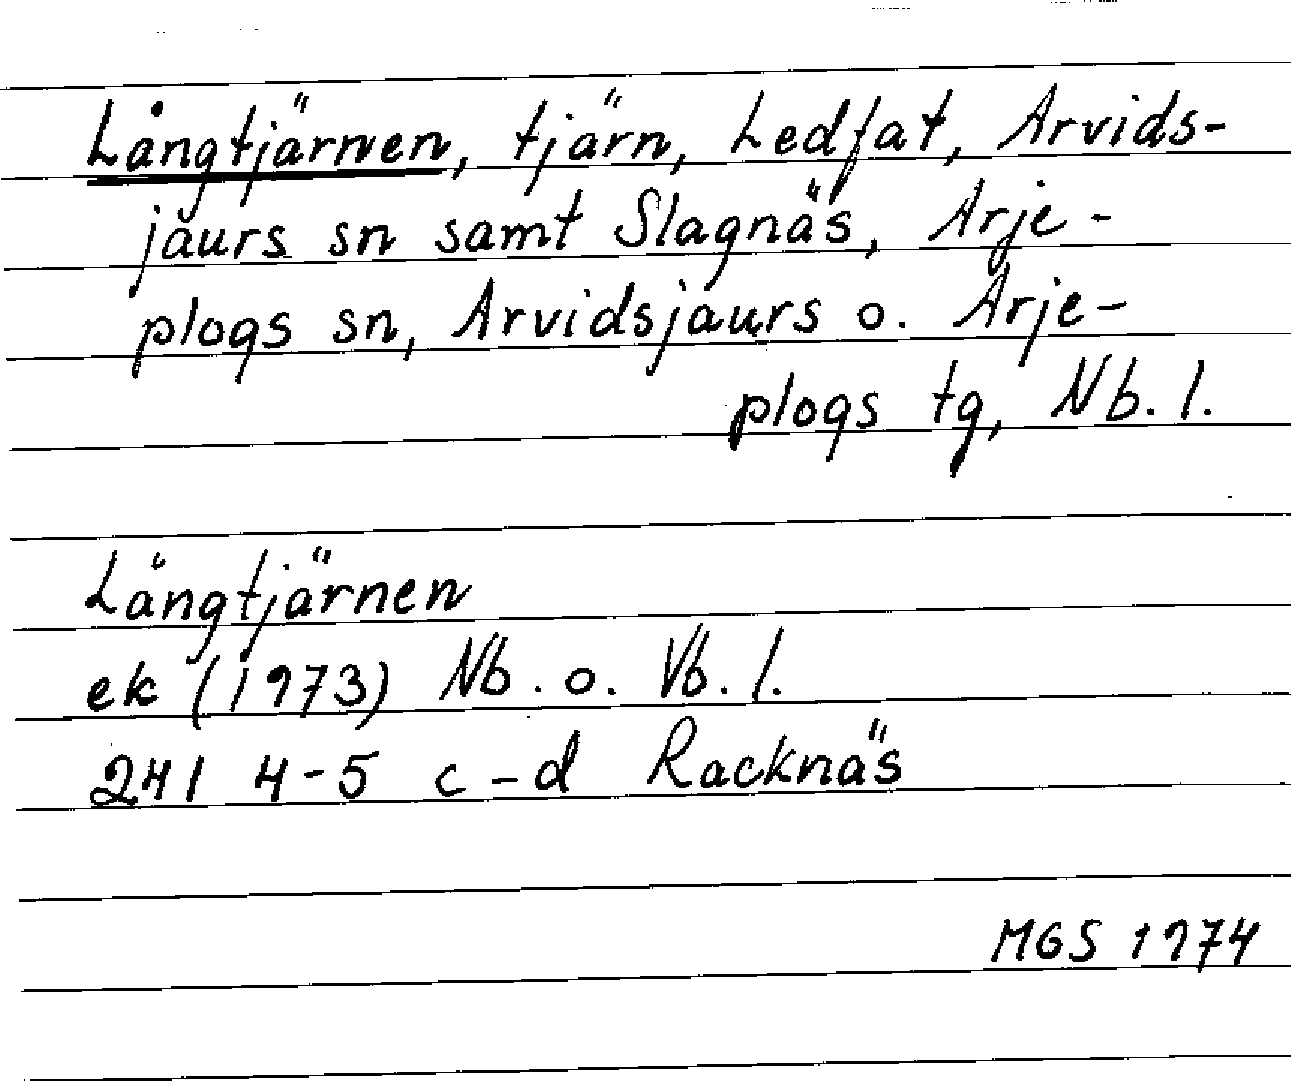 Långtjärnen, tjärn, Ledfat, Arvids-
jaurs sn samt Slagnäs, Arje-
plogs sn, Arvidsjaurs o. Arje-
plogs tg, Nb. l.
Långtjärnen
ek (1973) Nb. o. Vb. l.
241 4-5 c-d Racknäs
MGS 1974